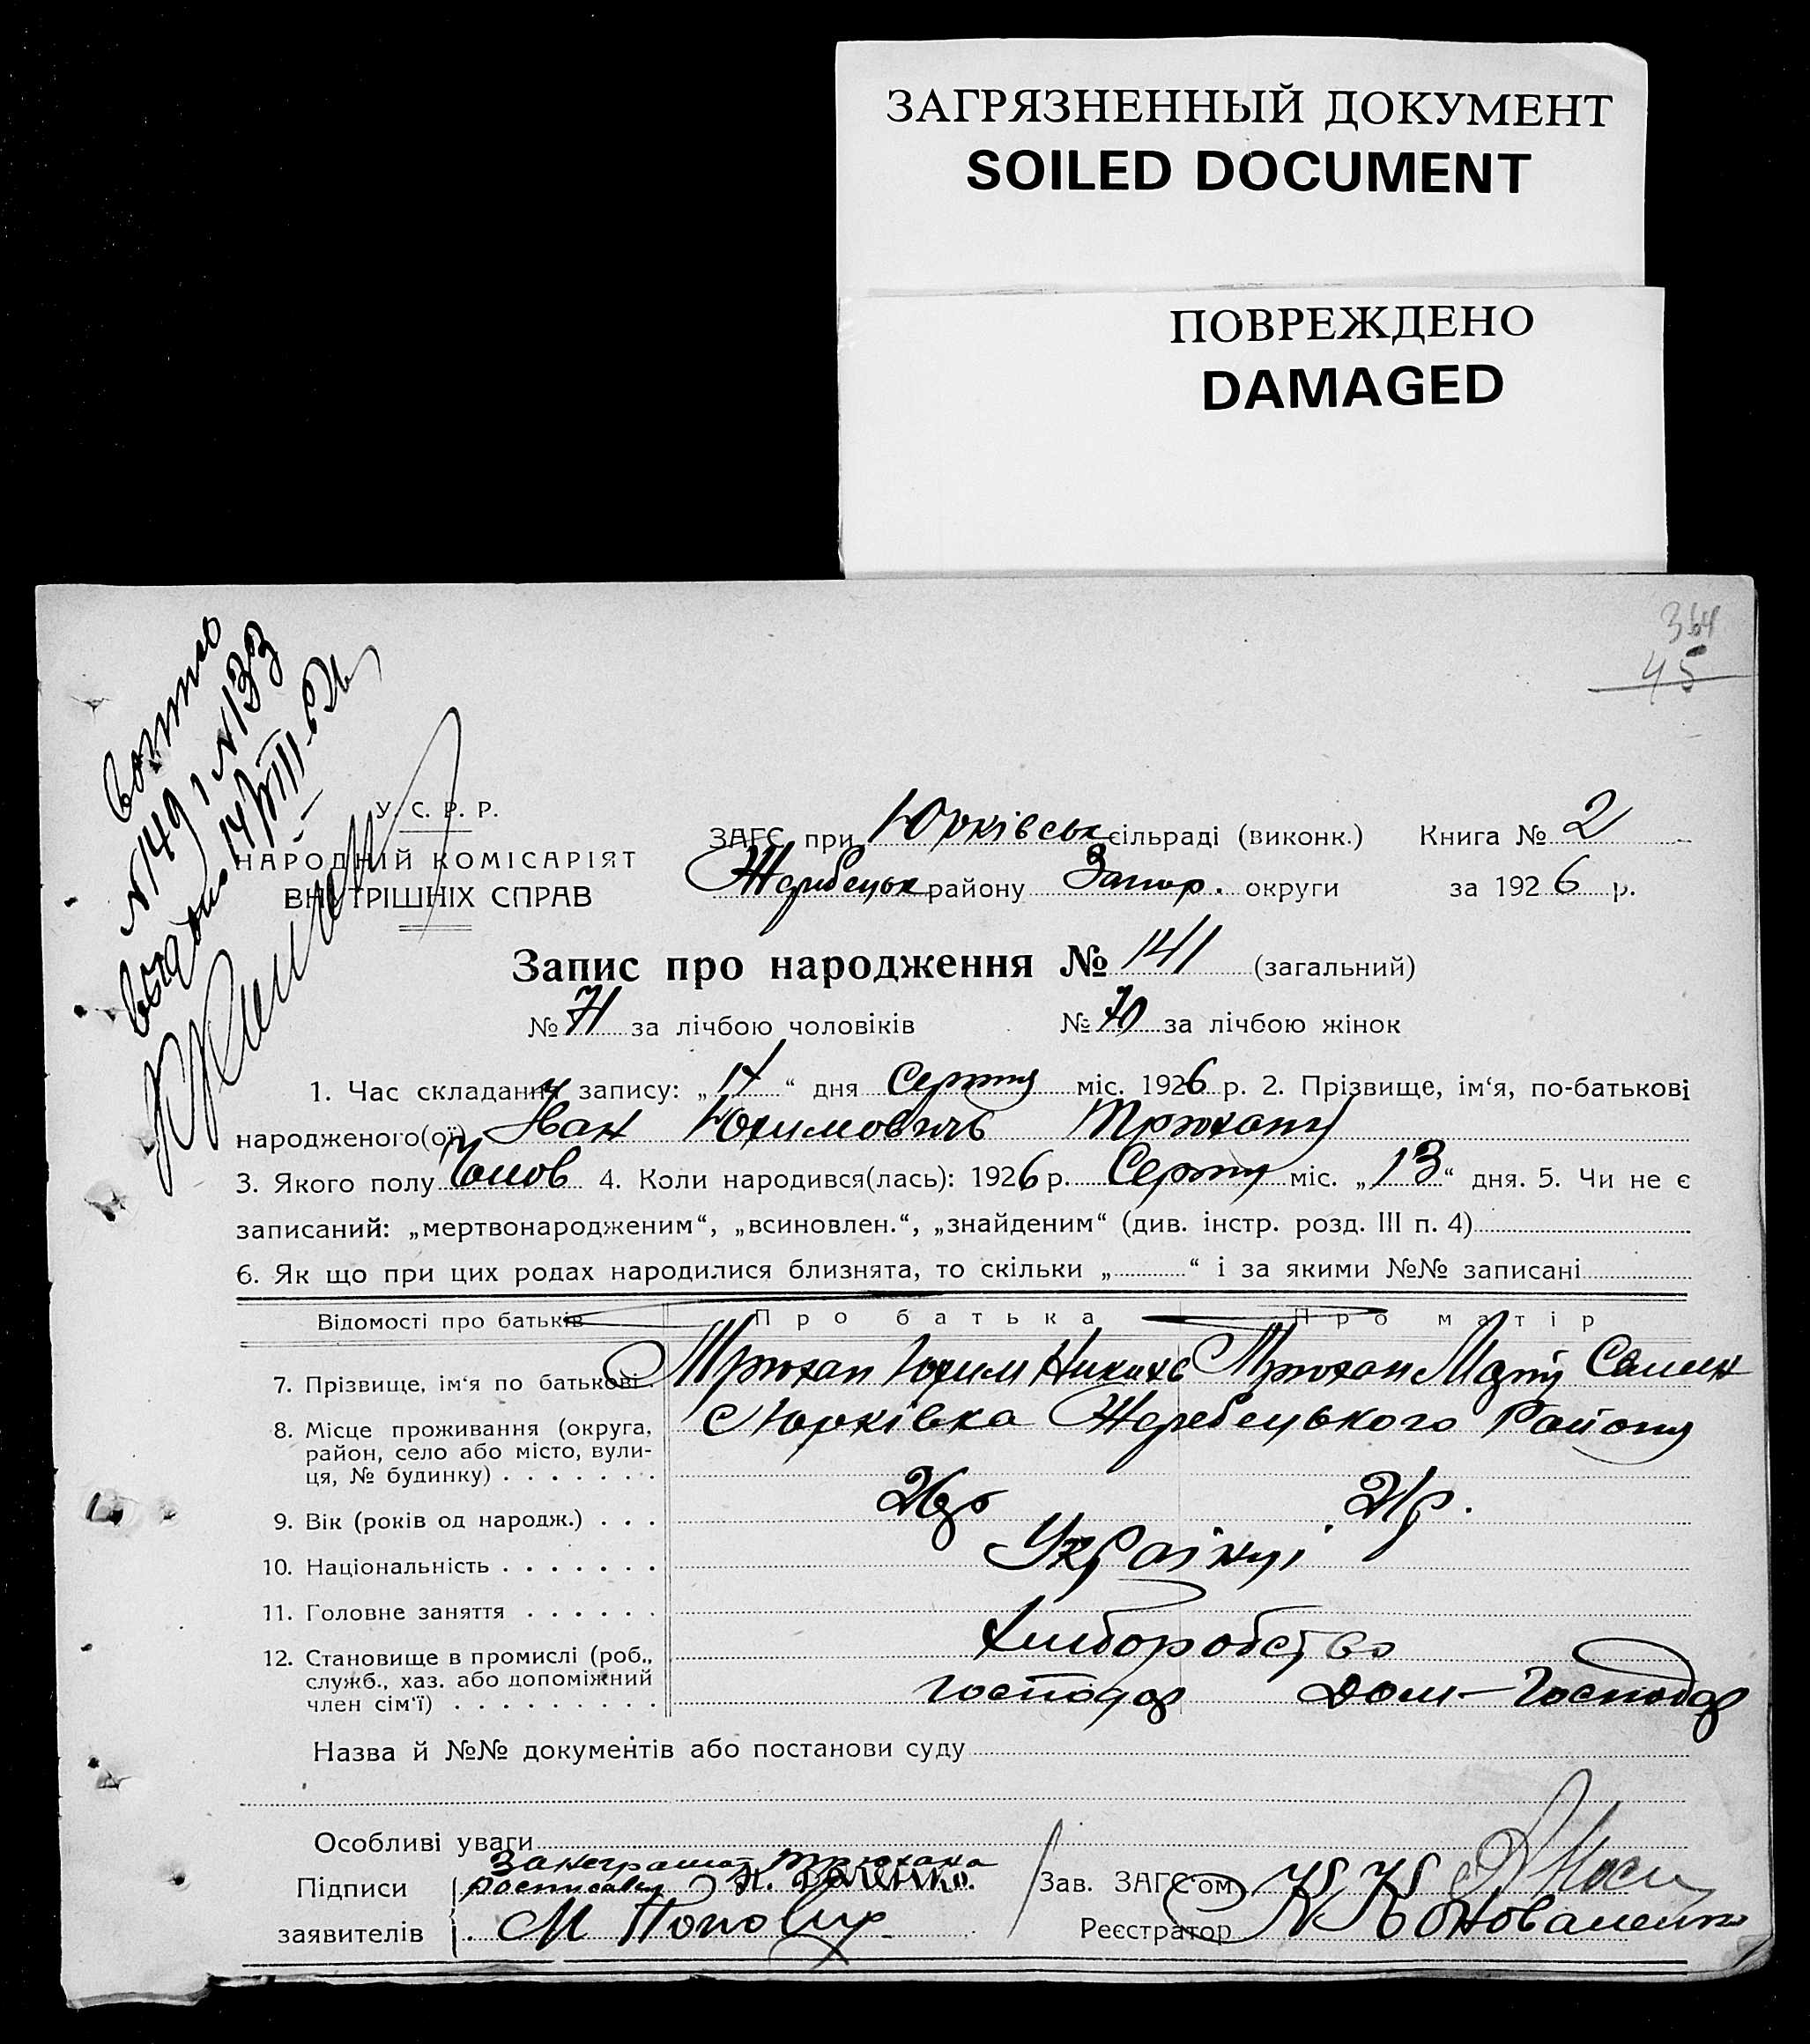 ЗАГРЯЗНЕННЫЙ ДОКУМЕНТ
SOILED DOCUMENT
ПОВРЕЖДЕНО
DAMAGED
364
45
N 149 і N 133
14/VIII-62
У. С. Р. Р.
НАРОДНІЙ КОМІСАРІЯТ
ВНУТРІШНІХ СПРАВ
ЗАГС при Юрківськ сільраді (виконк.) Книга № 2
Жеребецьк району Запор. округи за 1926 р.
Запис про народження № 141 (загальний)
№ 71 за лічбою чоловіків № 70 за лічбою жінок
1. Час складання запису: „17“ дня Серпня міс. 1926 р. 2. Прізвище, ім‘я, по-батькові
народженого(ої) Іван Юхимовичь Трюхан
3. Якого полу Чолов 4. Коли народився(лась): 1926 р. Серпня міс. „13“ дня. 5. Чи не є
записаний: „мертвонародженим“, „всиновлен.“, „знайденим“ (див. інстр. розд. III п. 4)
6. Як що при цих родах народилися близнята, то скільки „ “ і за якими №№ записані
Відомості про батьків Про батька Про матір
7. Прізвище, ім‘я по батькові. Трюхан Юхим Никихв Трюхан Марія Семен
8. Місце проживання (округа, с Юрківка Жеребецького Району
район, село або місто, вули-
ця, № будинку) . . . . . . .
9. Вік (років од народж.) . . . 26 р 21 р.
10. Національність . . . . . . . Українці
11. Головне заняття . . . . . . Хліборобство
12. Становище в промислі (роб.,
служб., хаз. або допоміжний
член сім‘ї) . . . . . . . . . . господар Дом-Господар
Назва й №№ документів або постанови суду
Особливі уваги
За неграмот Трюхана
Підписи росписався Зав. ЗАГС‘ом
заявителів М Попович Реєстратор Коноваленко